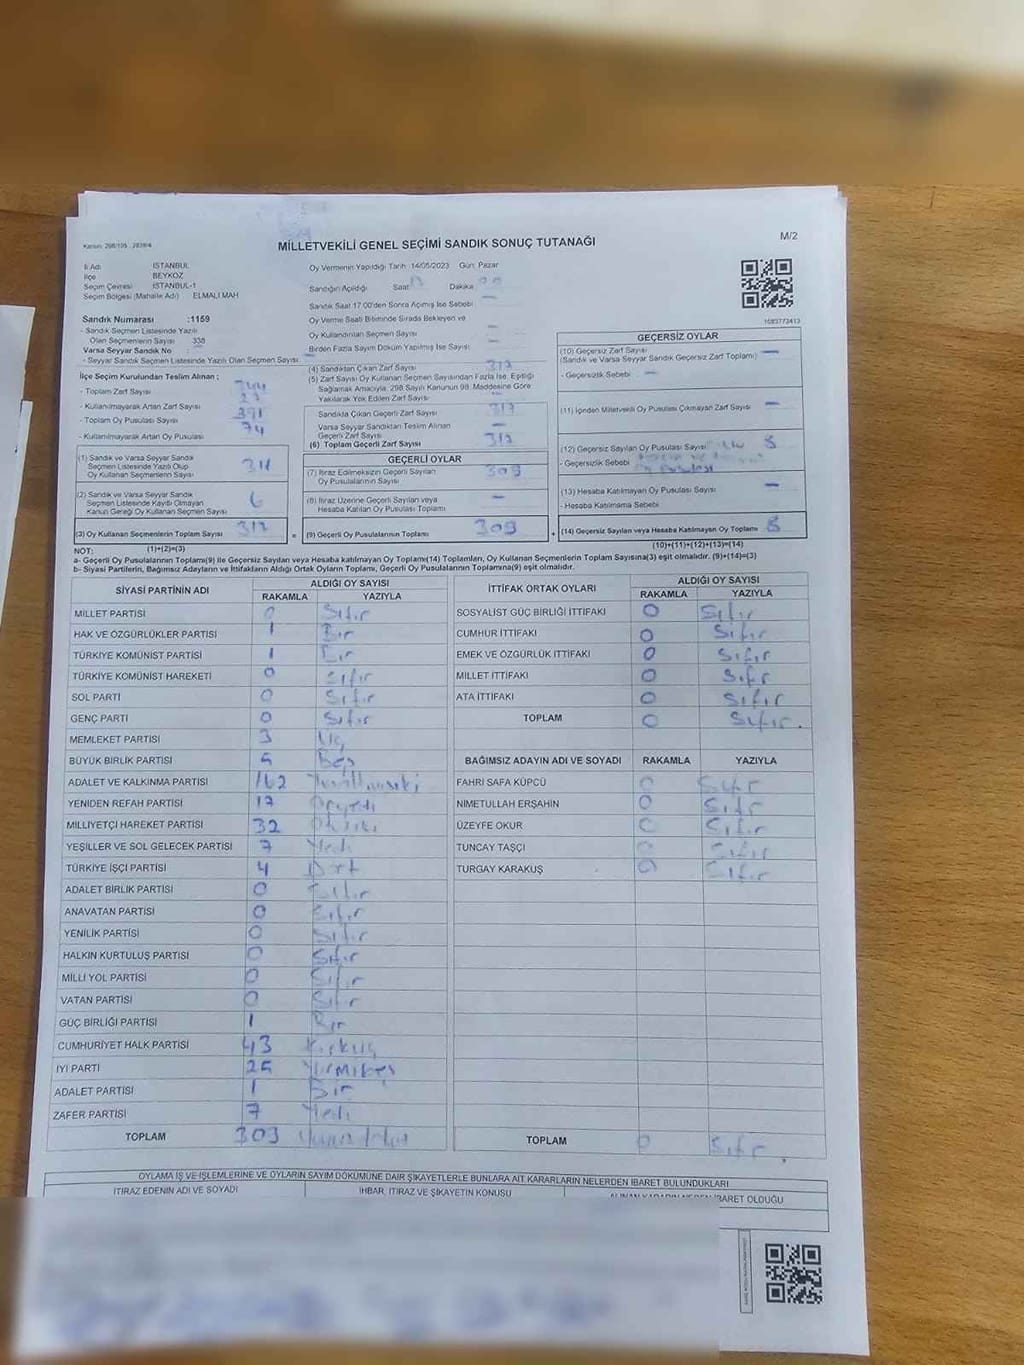 Kanun: 298/105 , 2839/4
MİLLETVEKİLİ GENEL SEÇİMİ SANDIK SONUÇ TUTANAĞI
M/2
İl Adı İSTANBUL
İlçe BEYKOZ
Seçim Çevresi İSTANBUL-1
Seçim Bölgesi (Mahalle Adı) ELMALI MAH
Oy Vermenin Yapıldığı Tarih 14/05/2023 Gün: Pazar
Sandığın Açıldığı Saat Dakika
Sandık Saat 17:00'den Sonra Açılmış İse Sebebi
Oy Verme Saati Bitiminde Sırada Bekleyen ve
Oy Kullandırılan Seçmen Sayısı
Birden Fazla Sayım Döküm Yapılmış İse Sayısı
Sandık Numarası :1159
- Sandık Seçmen Listesinde Yazılı
Olan Seçmenlerin Sayısı 338
Varsa Seyyar Sandık No :
- Seyyar Sandık Seçmen Listesinde Yazılı Olan Seçmen Sayısı
İlçe Seçim Kurulundan Teslim Alınan ;
- Toplam Zarf Sayısı
- Kullanılmayarak Artan Zarf Sayısı
- Toplam Oy Pusulası Sayısı 391
- Kullanılmayarak Artan Oy Pusulası 74
(1) Sandık ve Varsa Seyyar Sandık
Seçmen Listesinde Yazılı Olup
Oy Kullanan Seçmenlerin Sayısı 311
(2) Sandık ve Varsa Seyyar Sandık
Seçmen Listesinde Kaydı Olmayan
Kanun Gereği Oy Kullanan Seçmen Sayısı 6
(3) Oy Kullanan Seçmenlerin Toplam Sayısı 317
(1)+(2)=(3)
(4) Sandıktan Çıkan Zarf Sayısı 317
(5) Zarf Sayısı Oy Kullanan Seçmen Sayısından Fazla İse, Eşitliği
Sağlamak Amacıyla; 298 Sayılı Kanunun 98. Maddesine Göre
Yakılarak Yok Edilen Zarf Sayısı
Sandıkta Çıkan Geçerli Zarf Sayısı 317
Varsa Seyyar Sandıktan Teslim Alınan
Geçerli Zarf Sayısı
(6) Toplam Geçerli Zarf Sayısı 317
GEÇERLİ OYLAR
(7) İtiraz Edilmeksizin Geçerli Sayılan
Oy Pusulalarının Sayısı 309
(8) İtiraz Üzerine Geçerli Sayılan veya
Hesaba Katılan Oy Pusulası Toplamı
= (9) Geçerli Oy Pusulalarının Toplamı 309 +
1583773413
GEÇERSİZ OYLAR
(10) Geçersiz Zarf Sayısı
(Sandık ve Varsa Seyyar Sandık Geçersiz Zarf Toplamı)
- Geçersizlik Sebebi
(11) İçinden Milletvekili Oy Pusulası Çıkmayan Zarf Sayısı
(12) Geçersiz Sayılan Oy Pusulası Sayısı 8
- Geçersizlik Sebebi
Oy Pusulası
(13) Hesaba Katılmayan Oy Pusulası Sayısı
- Hesaba Katılmama Sebebi
(14) Geçersiz Sayılan veya Hesaba Katılmayan Oy Toplamı 8
(10)+(11)+(12)+(13)=(14)
NOT:
a- Geçerli Oy Pusulalarının Toplamı(9) ile Geçersiz Sayılan veya Hesaba katılmayan Oy Toplamı(14) Toplamları, Oy Kullanan Seçmenlerin Toplam Sayısına(3) eşit olmalıdır. (9)+(14)=(3)
b- Siyasi Partilerin, Bağımsız Adayların ve İttifakların Aldığı Ortak Oyların Toplamı, Geçerli Oy Pusulalarının Toplamına(9) eşit olmalıdır.
SİYASİ PARTİNİN ADI ALDIĞI OY SAYISI
RAKAMLA YAZIYLA
MİLLET PARTİSİ 0 Sıfır
HAK VE ÖZGÜRLÜKLER PARTİSİ 1 Bir
TÜRKİYE KOMÜNİST PARTİSİ 1 Bir
TÜRKİYE KOMÜNİST HAREKETİ 0 Sıfır
SOL PARTİ 0 Sıfır
GENÇ PARTİ 0 Sıfır
MEMLEKET PARTİSİ 3 Üç
BÜYÜK BİRLİK PARTİSİ 5 Beş
ADALET VE KALKINMA PARTİSİ 162
YENİDEN REFAH PARTİSİ 17
MİLLİYETÇİ HAREKET PARTİSİ 32
YEŞİLLER VE SOL GELECEK PARTİSİ 7 Yedi
TÜRKİYE İŞÇİ PARTİSİ 4 Dört
ADALET BİRLİK PARTİSİ 0 Sıfır
ANAVATAN PARTİSİ 0 Sıfır
YENİLİK PARTİSİ 0 Sıfır
HALKIN KURTULUŞ PARTİSİ 0 Sıfır
MİLLİ YOL PARTİSİ 0 Sıfır
VATAN PARTİSİ 0 Sıfır
GÜÇ BİRLİĞİ PARTİSİ 1 Bir
CUMHURİYET HALK PARTİSİ 43 Kırküç
İYİ PARTİ 25 Yirmibeş
ADALET PARTİSİ 1 Bir
ZAFER PARTİSİ 7 Yedi
TOPLAM 309
İTTİFAK ORTAK OYLARI ALDIĞI OY SAYISI
RAKAMLA YAZIYLA
SOSYALİST GÜÇ BİRLİĞİ İTTİFAKI 0 Sıfır
CUMHUR İTTİFAKI 0 Sıfır
EMEK VE ÖZGÜRLÜK İTTİFAKI 0 Sıfır
MİLLET İTTİFAKI 0 Sıfır
ATA İTTİFAKI 0 Sıfır
TOPLAM 0 Sıfır.
BAĞIMSIZ ADAYIN ADI VE SOYADI RAKAMLA YAZIYLA
FAHRİ SAFA KÜPCÜ 0 Sıfır
NİMETULLAH ERŞAHİN 0 Sıfır
ÜZEYFE OKUR 0 Sıfır
TUNCAY TAŞÇI 0 Sıfır
TURGAY KARAKUŞ 0 Sıfır
TOPLAM 0 Sıfır
OYLAMA İŞ VE İŞLEMLERİNE VE OYLARIN SAYIM DÖKÜMÜNE DAİR ŞİKAYETLERLE BUNLARA AİT KARARLARIN NELERDEN İBARET BULUNDUKLARI
İTİRAZ EDENİN ADI VE SOYADI İHBAR, İTİRAZ VE ŞİKAYETİN KONUSU ALINAN KARARIN NEDEN İBARET OLDUĞU